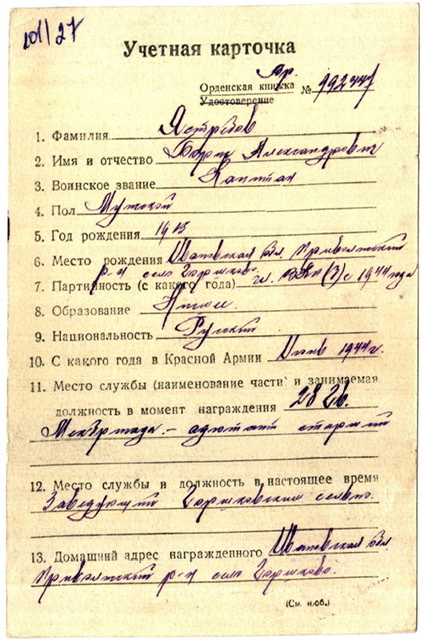 101/27
Учетная карточка
Пр.
Орденская книжка № 992447
Удостоверение
1. Фамилия Ястребов
2. Имя и отчество Борис Александрович
3. Воинское звание Капитан
4. Пол Мужской
5. Год рождения 1915
6. Место рождения Ивановская обл. Приволжский
р-н село Горшково.
7. Партийность (с какого года) чл. с 1944 года
8. Образование
9. Национальность Русский
10. С какого года в Красной Армии 1944 г.
11. Место службы (наименование части и занимаемая
должность в момент награждения 28 Гв.
Мехбригада – адютант старший
12. Место службы и должность в настоящее время
Заведующий Горшковским
13. Домашний адрес награжденного Ивановская обл
Приволжский р-н село Горшково.
(См. н/об.)